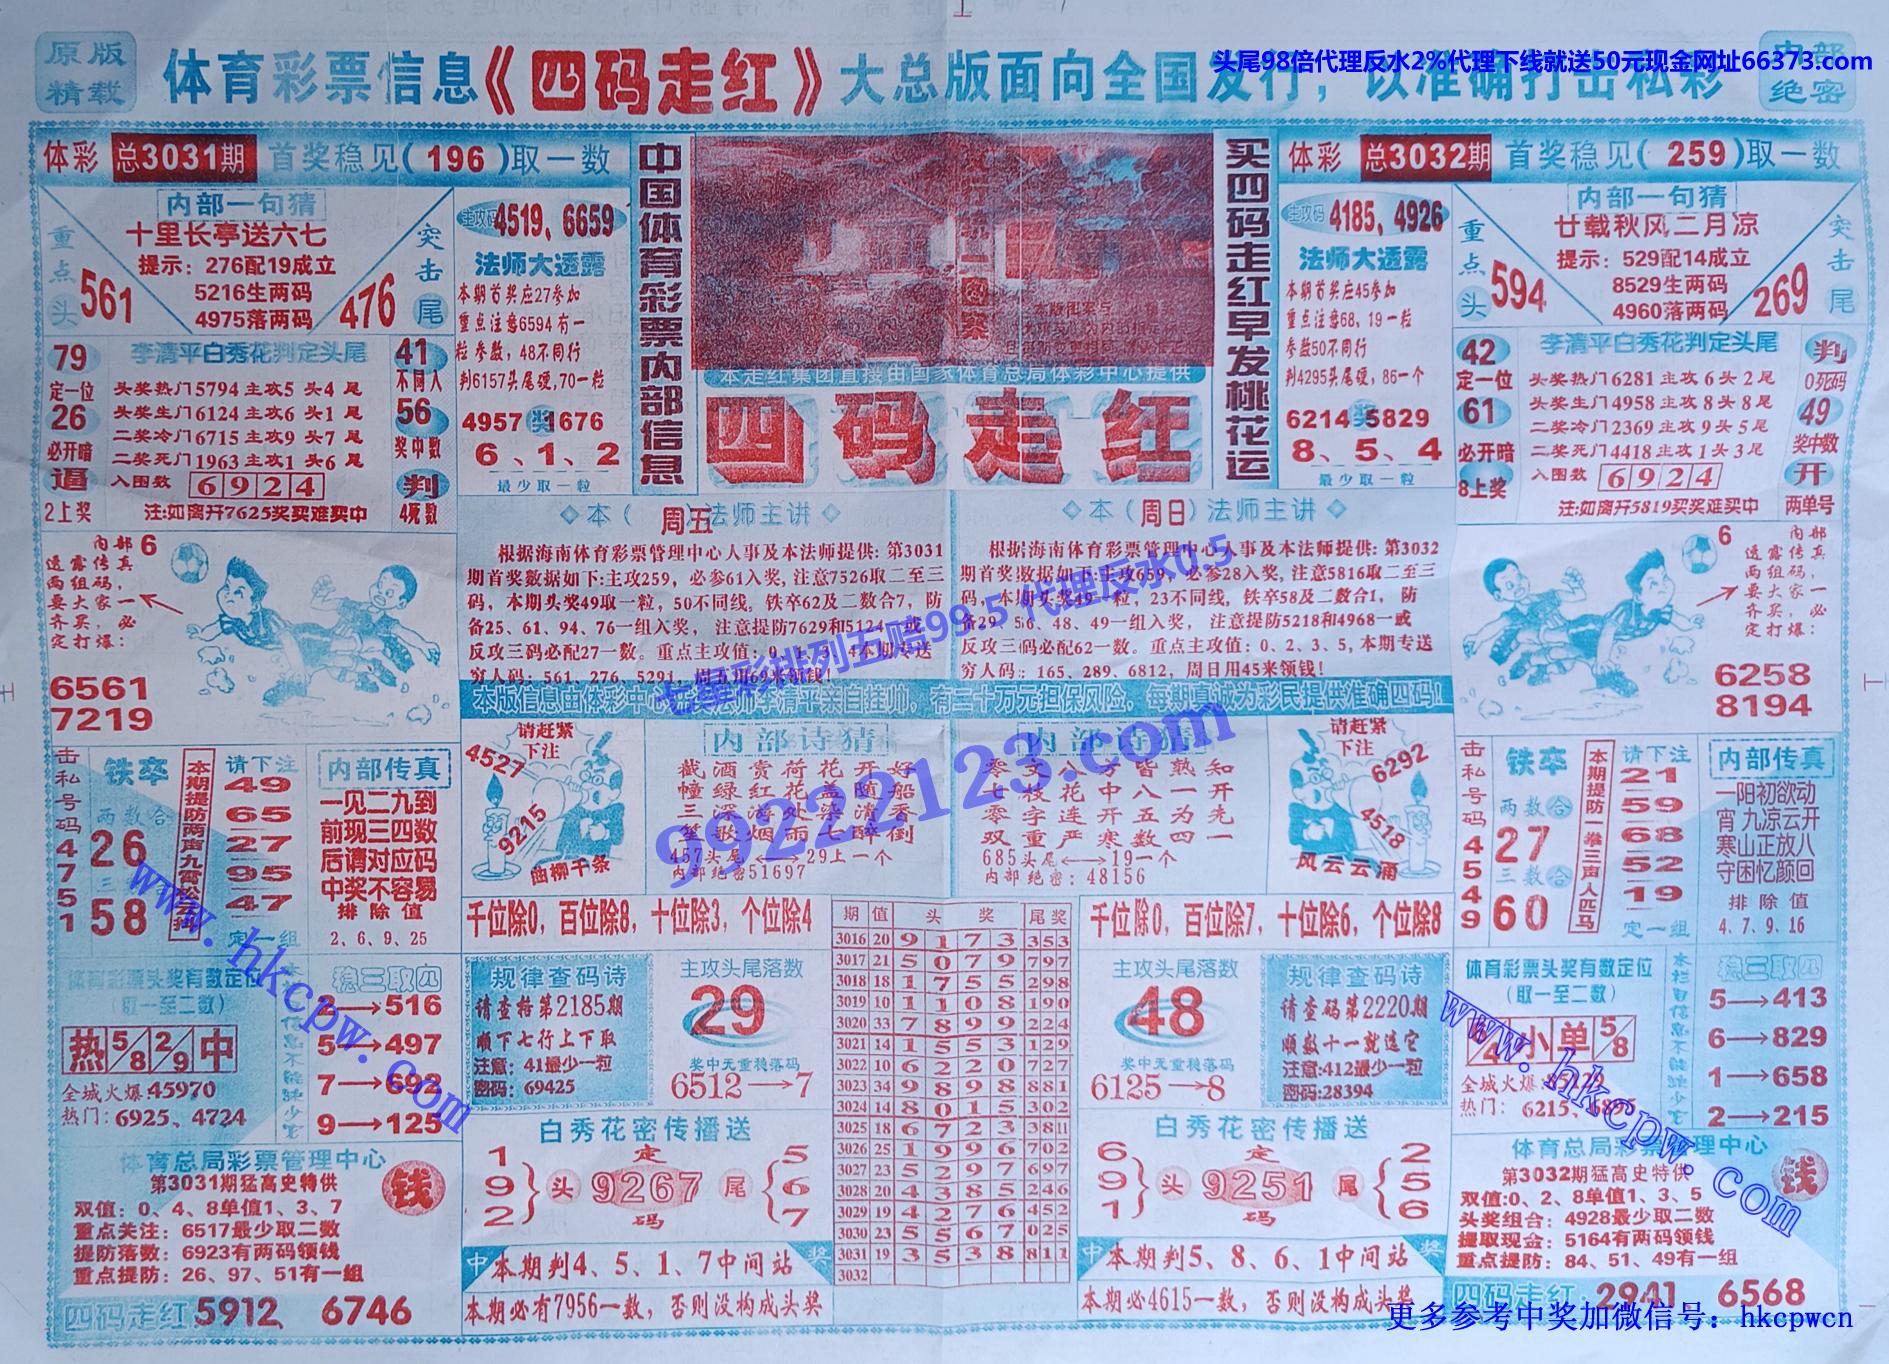 原版
精载
体育彩票信息《四码走红》大总版面向全国发行，以准确打击私彩
头尾98倍代理反水2%代理下线就送50元现金网址66373.com
内部
绝密
体彩 总3031期 首奖稳见(196)取一数
内部一句猜
十里长亭送六七
提示：276配19成立
5216生两码
4975落两码
重点头
561
突击尾
476
主攻码 4519、6659
法师大透露
本期首奖应27参加
重点注意6594有一
粒参数，48不同行
判6157头尾硬,70一粒
4957 奖 1676
6、1、2
最少取一粒
79
定一位
26
必开暗
逼
2上奖
李清平白秀花判定头尾
头奖热门5794主攻5头4尾
头奖生门6124主攻6头1尾
二奖冷门6715主攻9头7尾
二奖死门1963主攻1头6尾
入围数 6924
注:如离开7625奖买难买中
41
不同人
56
奖中数
判
4死数
中国体育彩票内部信息
本走红集团直授由国家体育总局体彩中心提供
四码走红
买四码走红早发桃花运
体彩 总3032期 首奖稳见(259)取一数
主攻码 4185、4926
法师大透露
本期首奖应45参加
重点注意68、19一粒
参数50不同行
判4295头尾硬，86一个
6214 奖 5829
8、5、4
最少取一粒
内部一句猜
廿载秋风二月凉
提示：529配14成立
8529生两码
4960落两码
重点头
594
突击尾
269
42
定一位
61
必开暗
8上奖
李清平白秀花判定头尾
头奖热门6281主攻6头2尾
头奖生门4958主攻8头8尾
二奖冷门2369主攻9头5尾
二奖死门4418主攻1头3尾
入围数 6924
注:如离开5819买奖难买中
判
0死码
49
奖中数
开
两单号
内部 6
透露传真
两组码，
要大家一
齐买，必
定打爆：
6561
7219
◇本（周五）法师主讲◇
根据海南体育彩票管理中心人事及本法师提供:第3031
期首奖数据如下:主攻259，必参61入奖,注意7526取二至三
码，本期头奖49取一粒，50不同线，铁卒62及二数合7，防
备25、61、94、76一组入奖，注意提防7629和5124一或
反攻三码必配27一数。重点主攻值：0、1、3、4本期专送
穷人码：561、276、5291，周五用69来领钱!
◇本（周日）法师主讲◇
根据海南体育彩票管理中心人事及本法师提供：第3032
期首奖数据如下:主攻659，必参28入奖,注意5816取二至三
码，本期头奖49一粒，23不同线，铁卒58及二数合1，防
备29、56、48、49一组入奖，注意提防5218和4968一或
反攻三码必配62一数。重点主攻值：0、2、3、5,本期专送
穷人码：165、289、6812，周日用45来领钱!
七星彩排列五赔99.5 代理反水0.5
99222123.com
6
内部
透露传真
两组码，
要大家一
齐买，必
定打爆：
6258
8194
击私号码4751
铁卒
两数合
26
三数合
58
请下注
49
65
27
95
47
定一组
内部传真
一见二九到
前现三四数
后谱对应码
中奖不容易
排除值
2、6、9、25
请赶紧
下注
4527
9215
曲柳千条
内部诗猜
截酒赏荷花开好
幢绿红花盖随船
三深湖处染清香
笙歌烟雨七醉倒
457头尾⟷29上一个
内部绝密51697
内部诗猜
零文八方皆熟知
七枝花中八一开
零字连开五为先
双重严寒数四一
685头尾⟷19一个
内部绝密：48156
请赶紧
下注
6292
4518
风云云涌
击私号码4549
铁卒
两数合
27
三数合
60
本期提防一拳三声人匹马
请下注
21
59
68
52
19
定一组
内部传真
一阳初欲动
宵九凉云开
寒山正放八
守困忆颜回
排除值
4、7、9、16
千位除0，百位除8，十位除3，个位除4
千位除0，百位除7，十位除6，个位除8
期 值 头奖 尾奖
3016 20 9173 353
3017 21 5079 797
3018 18 1755 298
3019 10 1108 190
3020 33 7899 224
3021 14 1553 129
3022 10 6220 727
3023 34 9898 881
3024 14 8015 302
3025 18 6723 381
3026 25 1996 702
3027 23 5297 697
3028 20 4385 246
3029 19 4276 452
3030 23 5567 025
3031 19 3538 811
3032
体育彩票头奖有数定位
（取一至二数）
热 5/8 2/9 中
全城火爆:45970
热门：6925、4724
稳三取四
2→516
5→497
7→693
9→125
规律查码诗
请查特第2185期
顺下七行上下取
注意：41最少一粒
密码：69425
主攻头尾落数
29
奖中无重稳落码
6512→7
主攻头尾落数
48
奖中无重稳落码
6125→8
规律查码诗
请查码第2220期
顺数十一就送它
注意:412最少一粒
密码:28394
体育彩票头奖有数定位
（取一至二数）
小单 5/8
热门：6215、6895
稳三取四
5→413
6→829
1→658
2→215
体育总局彩票管理中心
第3031期猛高史特供
双值：0、4、8单值1、3、7
重点关注：6517最少取二数
提防落数：6923有两码领钱
重点提防：26、97、51有一组
钱
四码走红 5912、6746
白秀花密传播送
192 头 定 9267 码 尾 567
中 本期判4、5、1、7中间站 奖
本期必有7956一数，否则没构成头奖
白秀花密传播送
691 头 定 9251 码 尾 256
中 本期判5、8、6、1中间站 奖
本期必4615一数，否则没构成头奖
体育总局彩票管理中心
第3032期猛高史特供
双值:0、2、8单值1、3、5
头奖组合：4928最少取二数
提取现金：5164有两码领钱
重点提防：84、51、49有一组
钱
四码走红：2941 6568
www.hkcpw.com
www.hkcpw.com
更多参考中奖加微信号：hkcpwcn